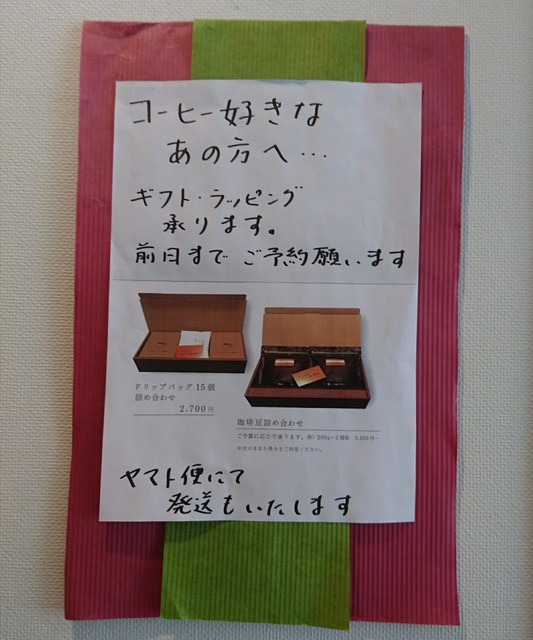 コーヒー好きな
あの方へ…
ギフト・ラッピング
承ります。
前日まで ご予約願います
ドリップバッグ 15個
詰め合わせ
2,700円
珈琲豆詰め合わせ
ご予算に応じて承ります。例）200g×2種類
ヤマト便にて
発送もいたします